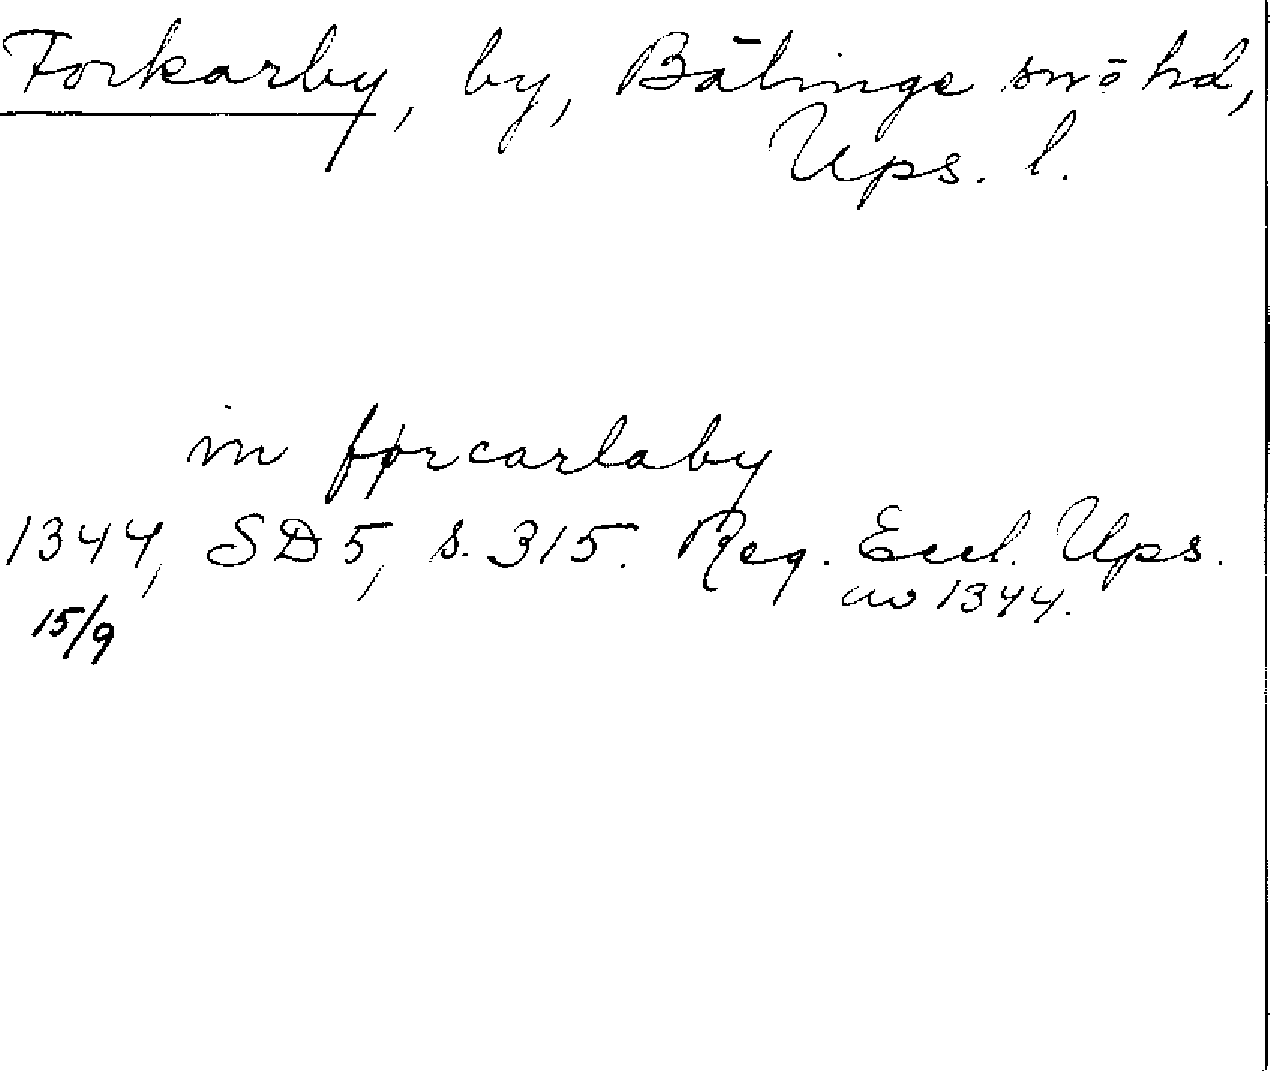 Forkarby, by, Bälinge sn o hd,
Ups. l.
in førcarlaby
1344, SD 5, s. 315. Reg. Eccl. Ups.
av 1344.
15/9